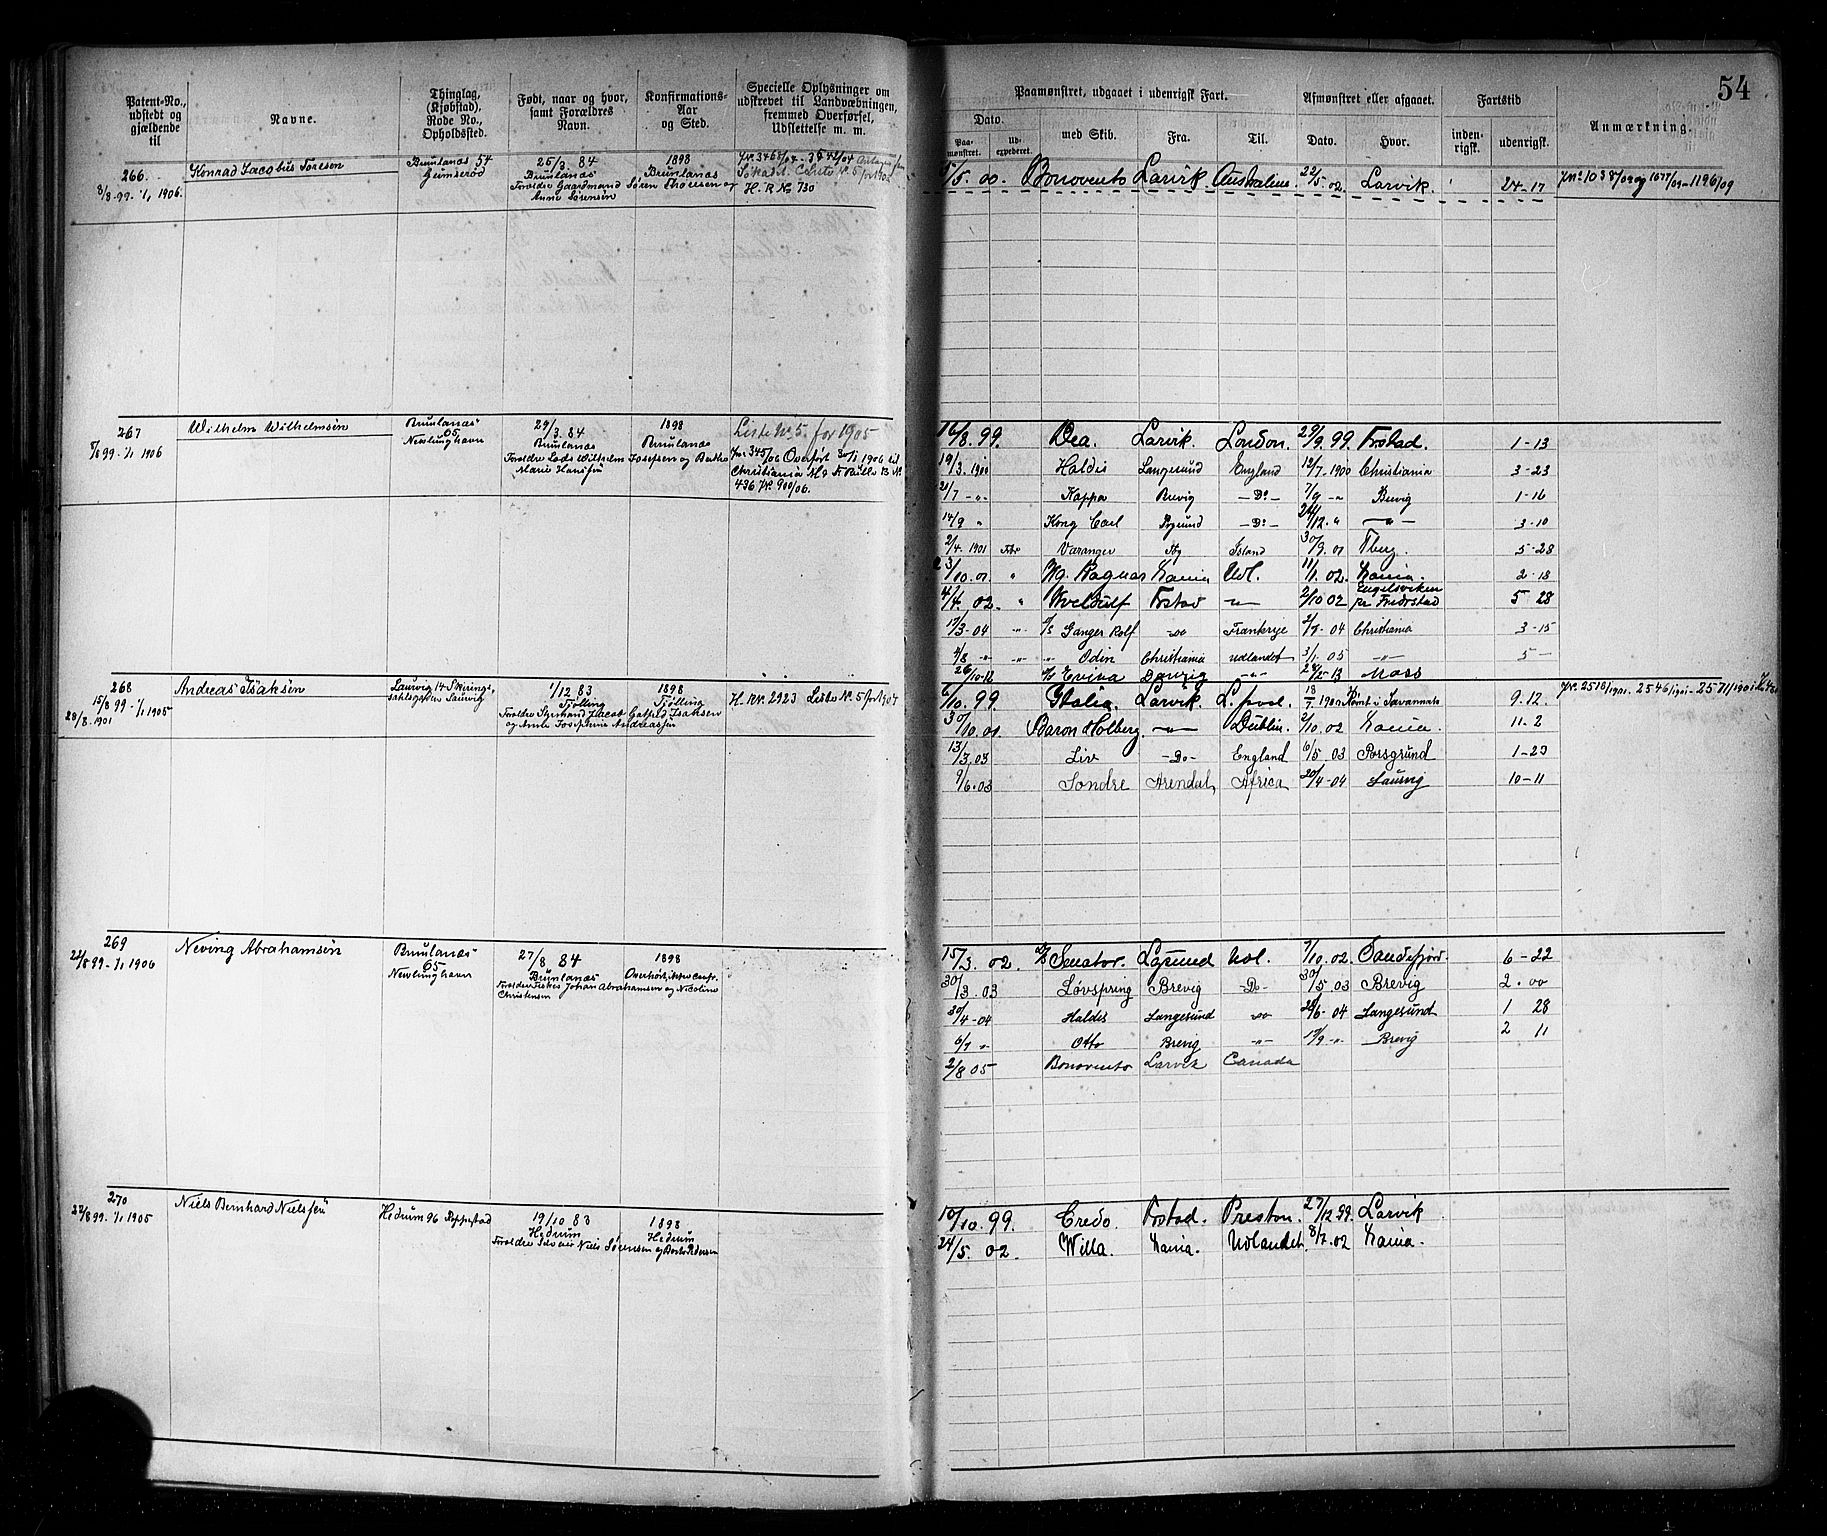 54
Patent-No., udstedt og gjældende til
Navne.
Thinglag, (Kjøbstad), Rode No., Opholdssted.
Født, naar og hvor, samt Forældres Navn.
Konfirmations- Aar og Sted.
Specielle Oplysninger om udskrevet til Landvæbningen, fremmed Overførsel, Udslettelse m. m.
Paamønstret, udgaaet i udenrigsk Fart.
Afmønstret eller afgaaet.
Fartstid
Anmærkning.
Dato.
Paamønstret.
Udexpederet.
med Skib.
Fra.
Til.
Dato.
Hvor.
indenrigsk.
udenrigsk.
266.
3/8-99-1/1 1906.
Konrad Jacobus Toresen
Brunlanæs 54
Gumserød
25/3 84
Brunlanæs
Forældre Gaardmand Søren Thoresen og
Anne Sørensen
1898
Brunlanæs
H. R. No 730
1/5. 00. Bonovento Larvik Australien. 22/5. 02. Larvik. 24-17
267
1/1 1906
Wilhelm Wilhelmsen
Brunlanæs
65
Nevlunghavn
29/3. 84
Brunlanæs
Forældre Lods Wilhelm Josefsen og Berthe
Marie Hansen
1898
Brunlanæs
Liste No. 5. for 1905
Jnr 345/06 Overført 30/1 1906 til
Christiania
436 Jnr. 900/06.
16/8. 99. Dea. Larvik. London. 29/9. 99. Frstad. 1-13
19/3. 1900 Haldis Langesund England 12/7. 1900 Christiania 3-23
21/7 -"- Kappa Brevig -Do- 7/9 -" Brevig 1-16
14/9 " Kong Carl Prgrund -Do- 24/12. " -"- 3-10
2/4. 1901 Varanger Island 30/9. 01 Tberg. 5-28
3/10. 01 " Ragnar Xania Udl. 11/1. 02. Xania. 2-18
4/4. 02. " Kveldulf Frstad -"- 2/10 02 Engelsviken
pr Fredrstad 5 28
17/3-04 -"- Ganger Rolf Frankrige 2/7-04 Christiania 3-15
4/8 -"- -"- -"- Odin Christiania Udlandet 3/1. 05 -"- 5 -
26/10-12 Evina Danzig -"- 28/12-13 Moss
268
15/8 99-1/1 1905
28/8. 1901
Andreas Isaksen
Laurvig 14-Skirings-
salsgaden Laurvig
1/12 83
Tjølling
Forældre Styrmand Jacob Gotfeld Isaksen
og Amb. Josephine Andreassen
1898
Tjølling
H. Rnr. 2923 Liste No. 5 for 1904
6/10. 99. Italia. Larvik. L.pool. 18/7. 1900 Rømt i Savannah 9. 12.
30/10. 01. Baron Holberg. -"- Dublin. 2/10. 02 Xania. 11. 2
13/3. 03 Liv -Do- England 6/5. 03 Porsgrund 1-23
9/6. 03 Søndre Arendal Africa 20/4-04 Laurvig 10-11
269
22/8 99-1/1 1906
Neving Abrahamsen
Brunlanæs
65
Nevlunghavn
27/8 84
Brunlanæs
Forældre Fisker Johan Abrahamsen og Nicoline
Christensen
1898
15/3. 02. Senator. Lgsund Udl. 7/10. 02. Sandefjord 6-22
30/3. 03 Løvspring Brevig -Do- 30/5. 03 Brevig 2. 00
30/4-04 Haldis Langesund 28/6-04 Langesund 1 28
6/7 " Otto Brevig -"- 17/9 -"- Brevig 2 11
2/8 05 Bonovento Larvik Canada
270
22/8 99. 1/1 1905
Niels Bernhard Nielsen
Hedrum 96 Reppestad
19/10 83
Hedrum
Niels Sørensen og
1898
Hedrum
10/10. 99. Credo. Frstad. Preston. 27/12 99. Larvik
24/5. 02. Willa. Xania. Udlandet. 8/7. 02 Xania.